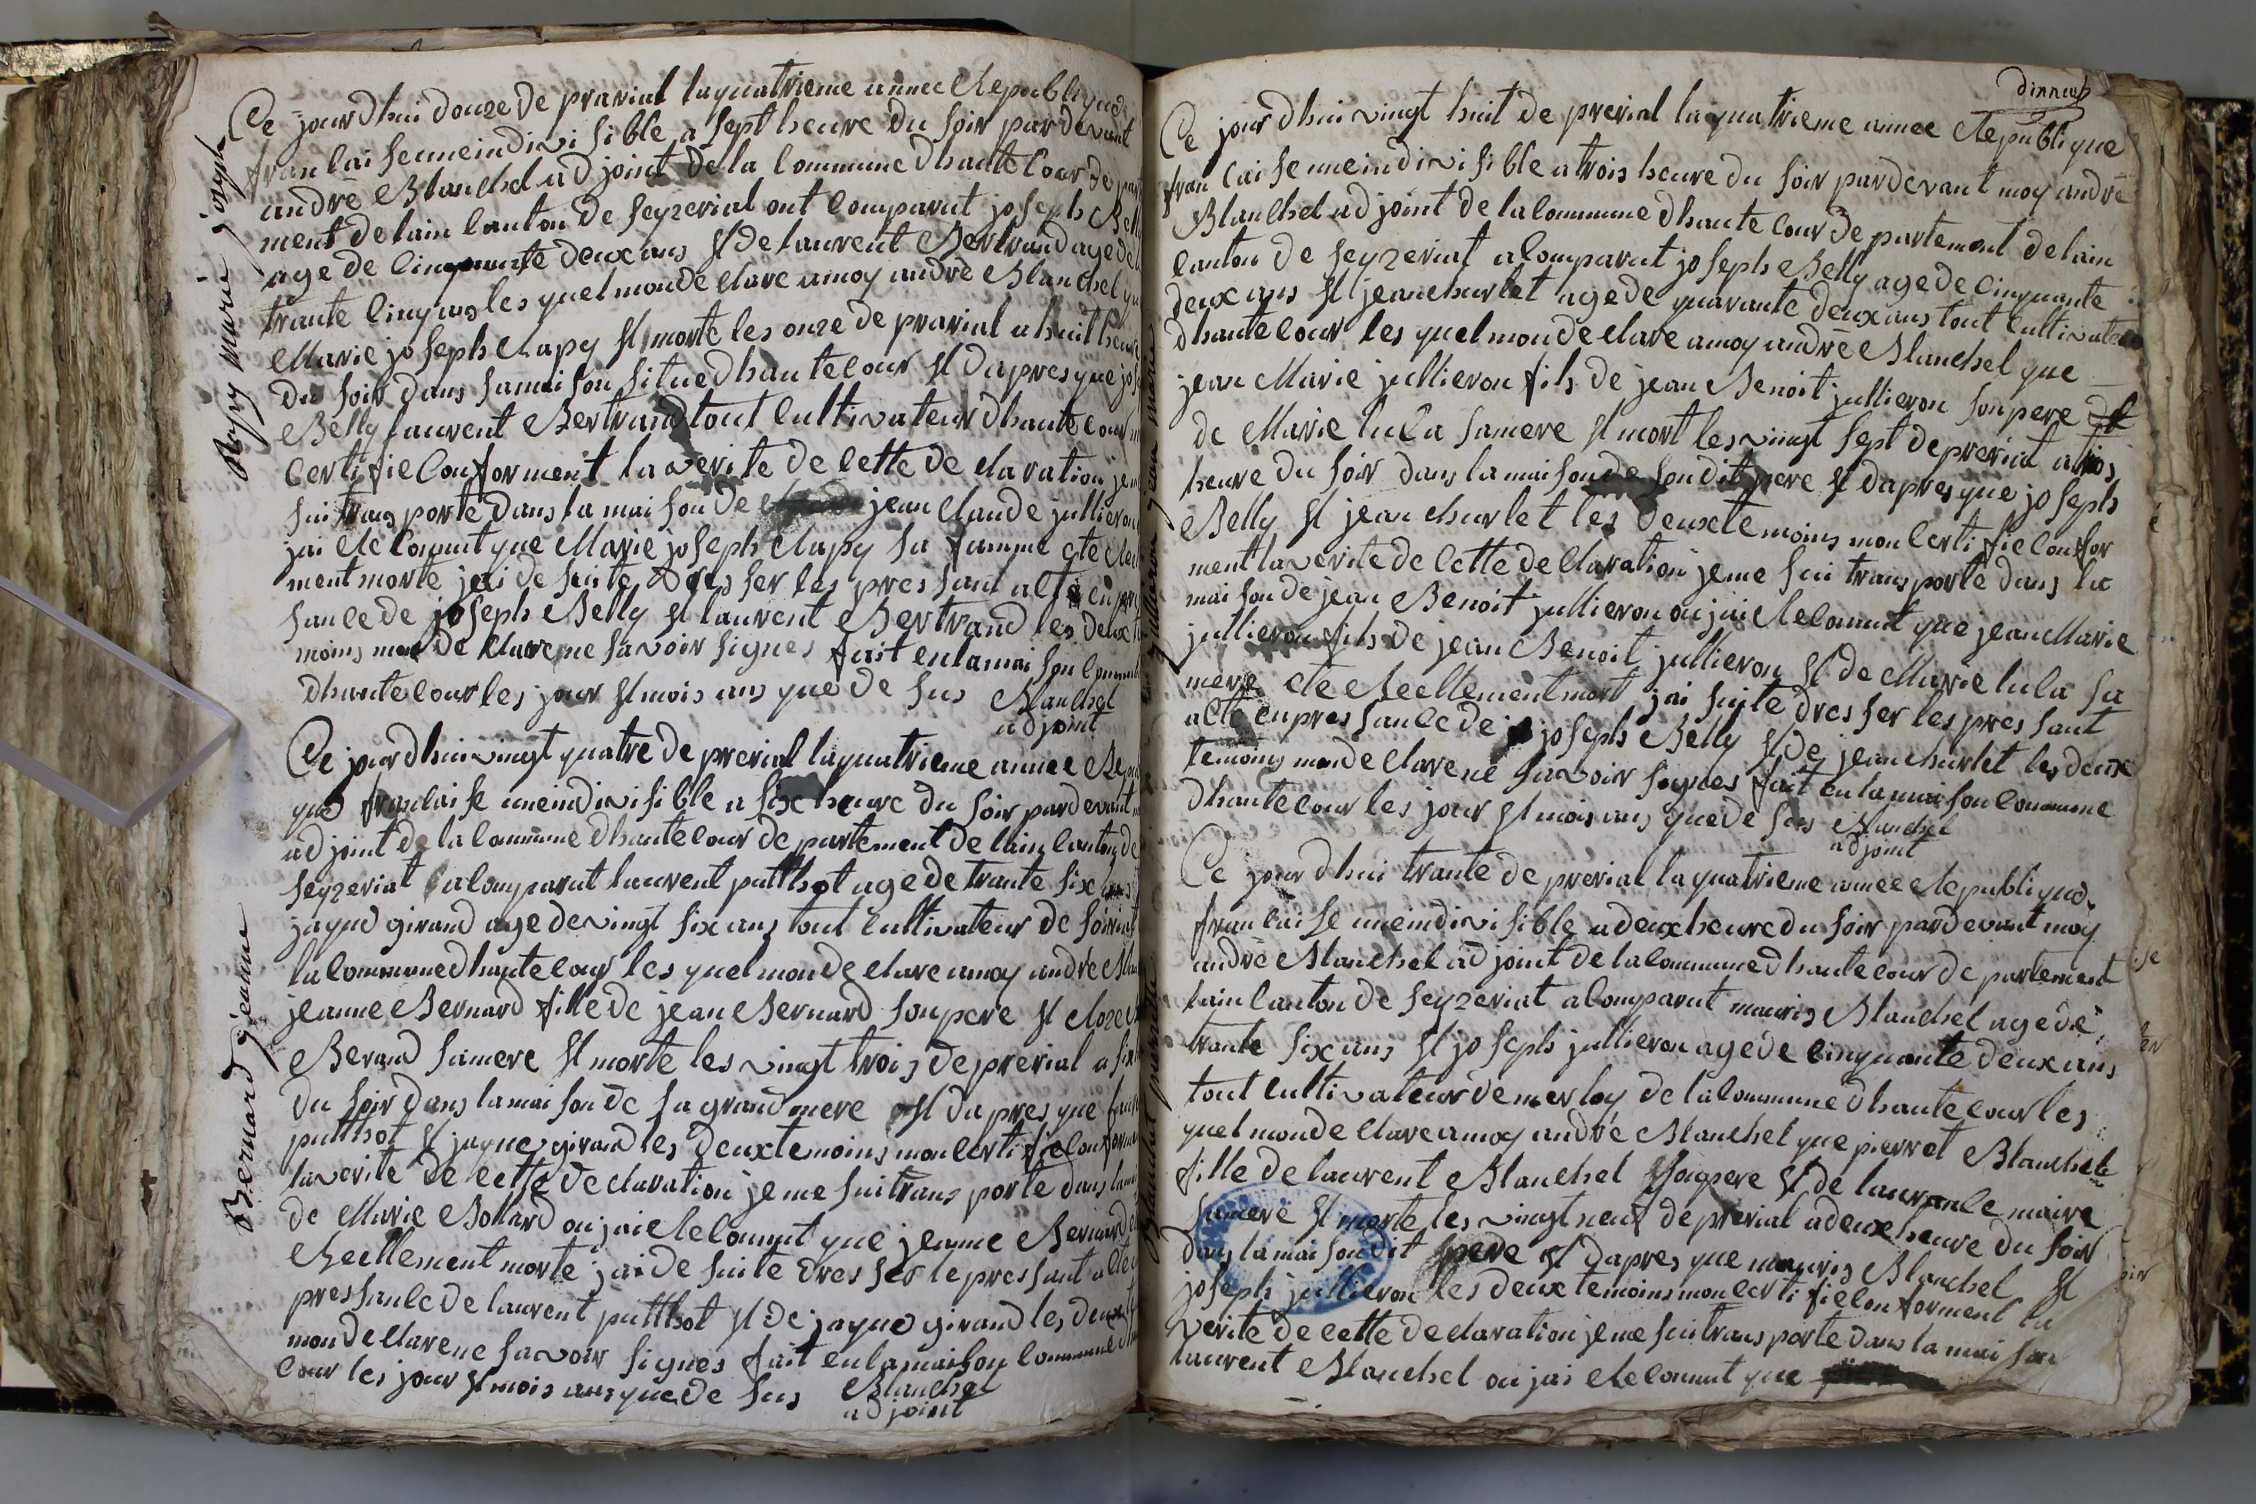 Ce jourdhui douze de prarial la quatrieme annee Republique
francaise une indivisible a sept heure du soir pardevant
andre Blanchet adjoint de la commune dhautecour depar
ment de lain canton de seyzeriat ont comparut joseph Bell
age de cinquante deux ans et de laurent Bertrand age de
trante cinq ans les quel mon declare a moy andre Blanchet que
Marie joseph Rapy et morte les onze de prarial a huit heure
du soir dans sa maison situe dhautecour et dapres que jos
Belly laurent Bertrand tout cultivateur dhautecour
certifie conforment la verite de cette declaration je
sui transporte dans la maison de jean claude jullieron
jai Reconnut que Marie joseph Rapy sa famme ete Reel
ment morte jai de suite dresser les pressant acte en pre
sance de joseph Belly et laurent Bertrand les deux te
moins mon declare ne savoir signes fait en la maison commune
dhautecour les jour et mois ans que de sus Blanchet
adjoint
Rapy marie joseph
Ce jourdhui vingt quatre de prerial la quatrieme annee Repu
que francaise une indivisible a six heure du soir pardevant
adjoint de la commune dhautecour departement de lain canton de
seyzeriat a comparut laurent putthot age de trante six ans
jaque girand age de vingt six ans tout cultivateur de soiriat
la commune dhautecour les quel mon declare a moy andre Blan
jeanne Bernard fille de jean Bernard son pere et Roze
Berand sa mere et morte les vingt trois de prerial a six
du soir dans la maison de sa grand mere et dapres que laur
putthot et jaques girand les deux temoins mon certifie conforme
la verite de cette declaration je me sui transporte dans la mai
de Marie Bollard ou jai Reconnut que jeanne Bernard
Reellement morte jai de suite dresser le pressant acte
pressance de laurent putthot et de jaque girand les deux
mon declare ne savoir signes fait en la maison commune
cour les jour et mois ans que de sus Blanchet
adjoint
Bernard jeanne
Ce jour dhui vingt huit de prerial la quatrieme annee Republique
francaise une indivisible a trois heure du soir pardevant moy andre
Blanchet adjoint de la commune dhautecour departement de lain
canton de seyzeriat a comparut joseph Belly age de cinquante
deux ans et jean churlet age de quarante deux ans tout cultivateur
dhautecour les quel mon declare a moy andre Blanchet que
jean Marie jullieron fils de jean Benoit jullieron son pere et
de Marie luca sa mere et mort les vingt sept de prerial a trois
heure du soir dans la maison de son dit pere et dapres que joseph
Belly et jean churlet les deux temoins mon certifie confor
ment la verite de cette declaration je me sui transporte dans la
maison de jean Benoit jullieron ou jai Reconnut que jean Marie
jullieron fils de jean Benoit jullieron et de Marie luca sa
mere ete Reellement mort jai suite dresser les pressant
acte en pressance de joseph Belly et de jean churlet les deux
temoins mon declare ne savoir signes fait en la maison commune
dhautecour les jour et mois ans que de sus Blanchet
adjoint
jullieron jean marie
Ce jour dhui trante de prerial la quatrieme annee Republique
francaise une indivisible a deux heure du soir pardevant moy
andre Blanchet adjoint de la commune dhautecour departement
lain canton de seyzeriat a comparut mauris Blanchet age de
trante six ans et joseph jullieron age de cinquante deux ans
tout cultivateur de merloy de la commune dhautecour les
quel mon declare a moy andre Blanchet que pierret Blanchet
fille de laurent Blanchet son pere et de laurance maire
sa mere et morte les vingt neuf de prerial a deux heure du soir
dans la maison dit pere et dapres que mauris Blanchet et
joseph jullieron les deux temoins mon certifie conforment la
verite de cette declaration je me sui transporte dans la maison
laurent Blanchet ou jai Reconnut que